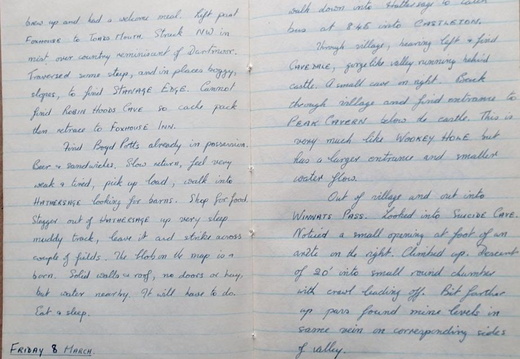 brew up and had a welcome meal. Left past
FOXHOUSE to TOADS MOUTH. Struck NW in
mist over country reminiscent of Dartmoor.
Traversed some steep, and in places boggy,
slopes, to find STANAGE EDGE. Cannot
find ROBIN HOODS CAVE so cache pack
then retrace to FOXHOUSE INN.
Find Boyd Potts already in possession.
Beer & sandwiches. Slow return, feel very
weak & tired, pick up load, walk into
HATHERSAGE looking for barns. Shop for food.
Stagger out of HATHERSAGE up very steep
muddy track, leave it and strike across
couple of fields. The blob on the map is a
barn. Solid walls & roof, no doors or hay,
but water nearby. It will have to do.
Eat & sleep.
FRIDAY 8 MARCH.
walk down into Hathersage to catch
bus at 8.45 into CASTLETON.
Through village, bearing left & find
CAVEDALE, gorgelike valley running behind
castle. A small cave in right. Back
through village and find entrance to
PEAK CAVERN below the castle. This is
very much like WOOKEY HOLE but
has a larger entrance and smaller
water flow.
Out of village and out into
WINNATS PASS. Looked into SUICIDE CAVE.
Noticed a small opening at foot of an
arête on the right. Climbed up. Descent
of 20' into small round chamber
with crawl leading off. Bit further
up pass found mine levels in
same vein on corresponding sides
of valley.